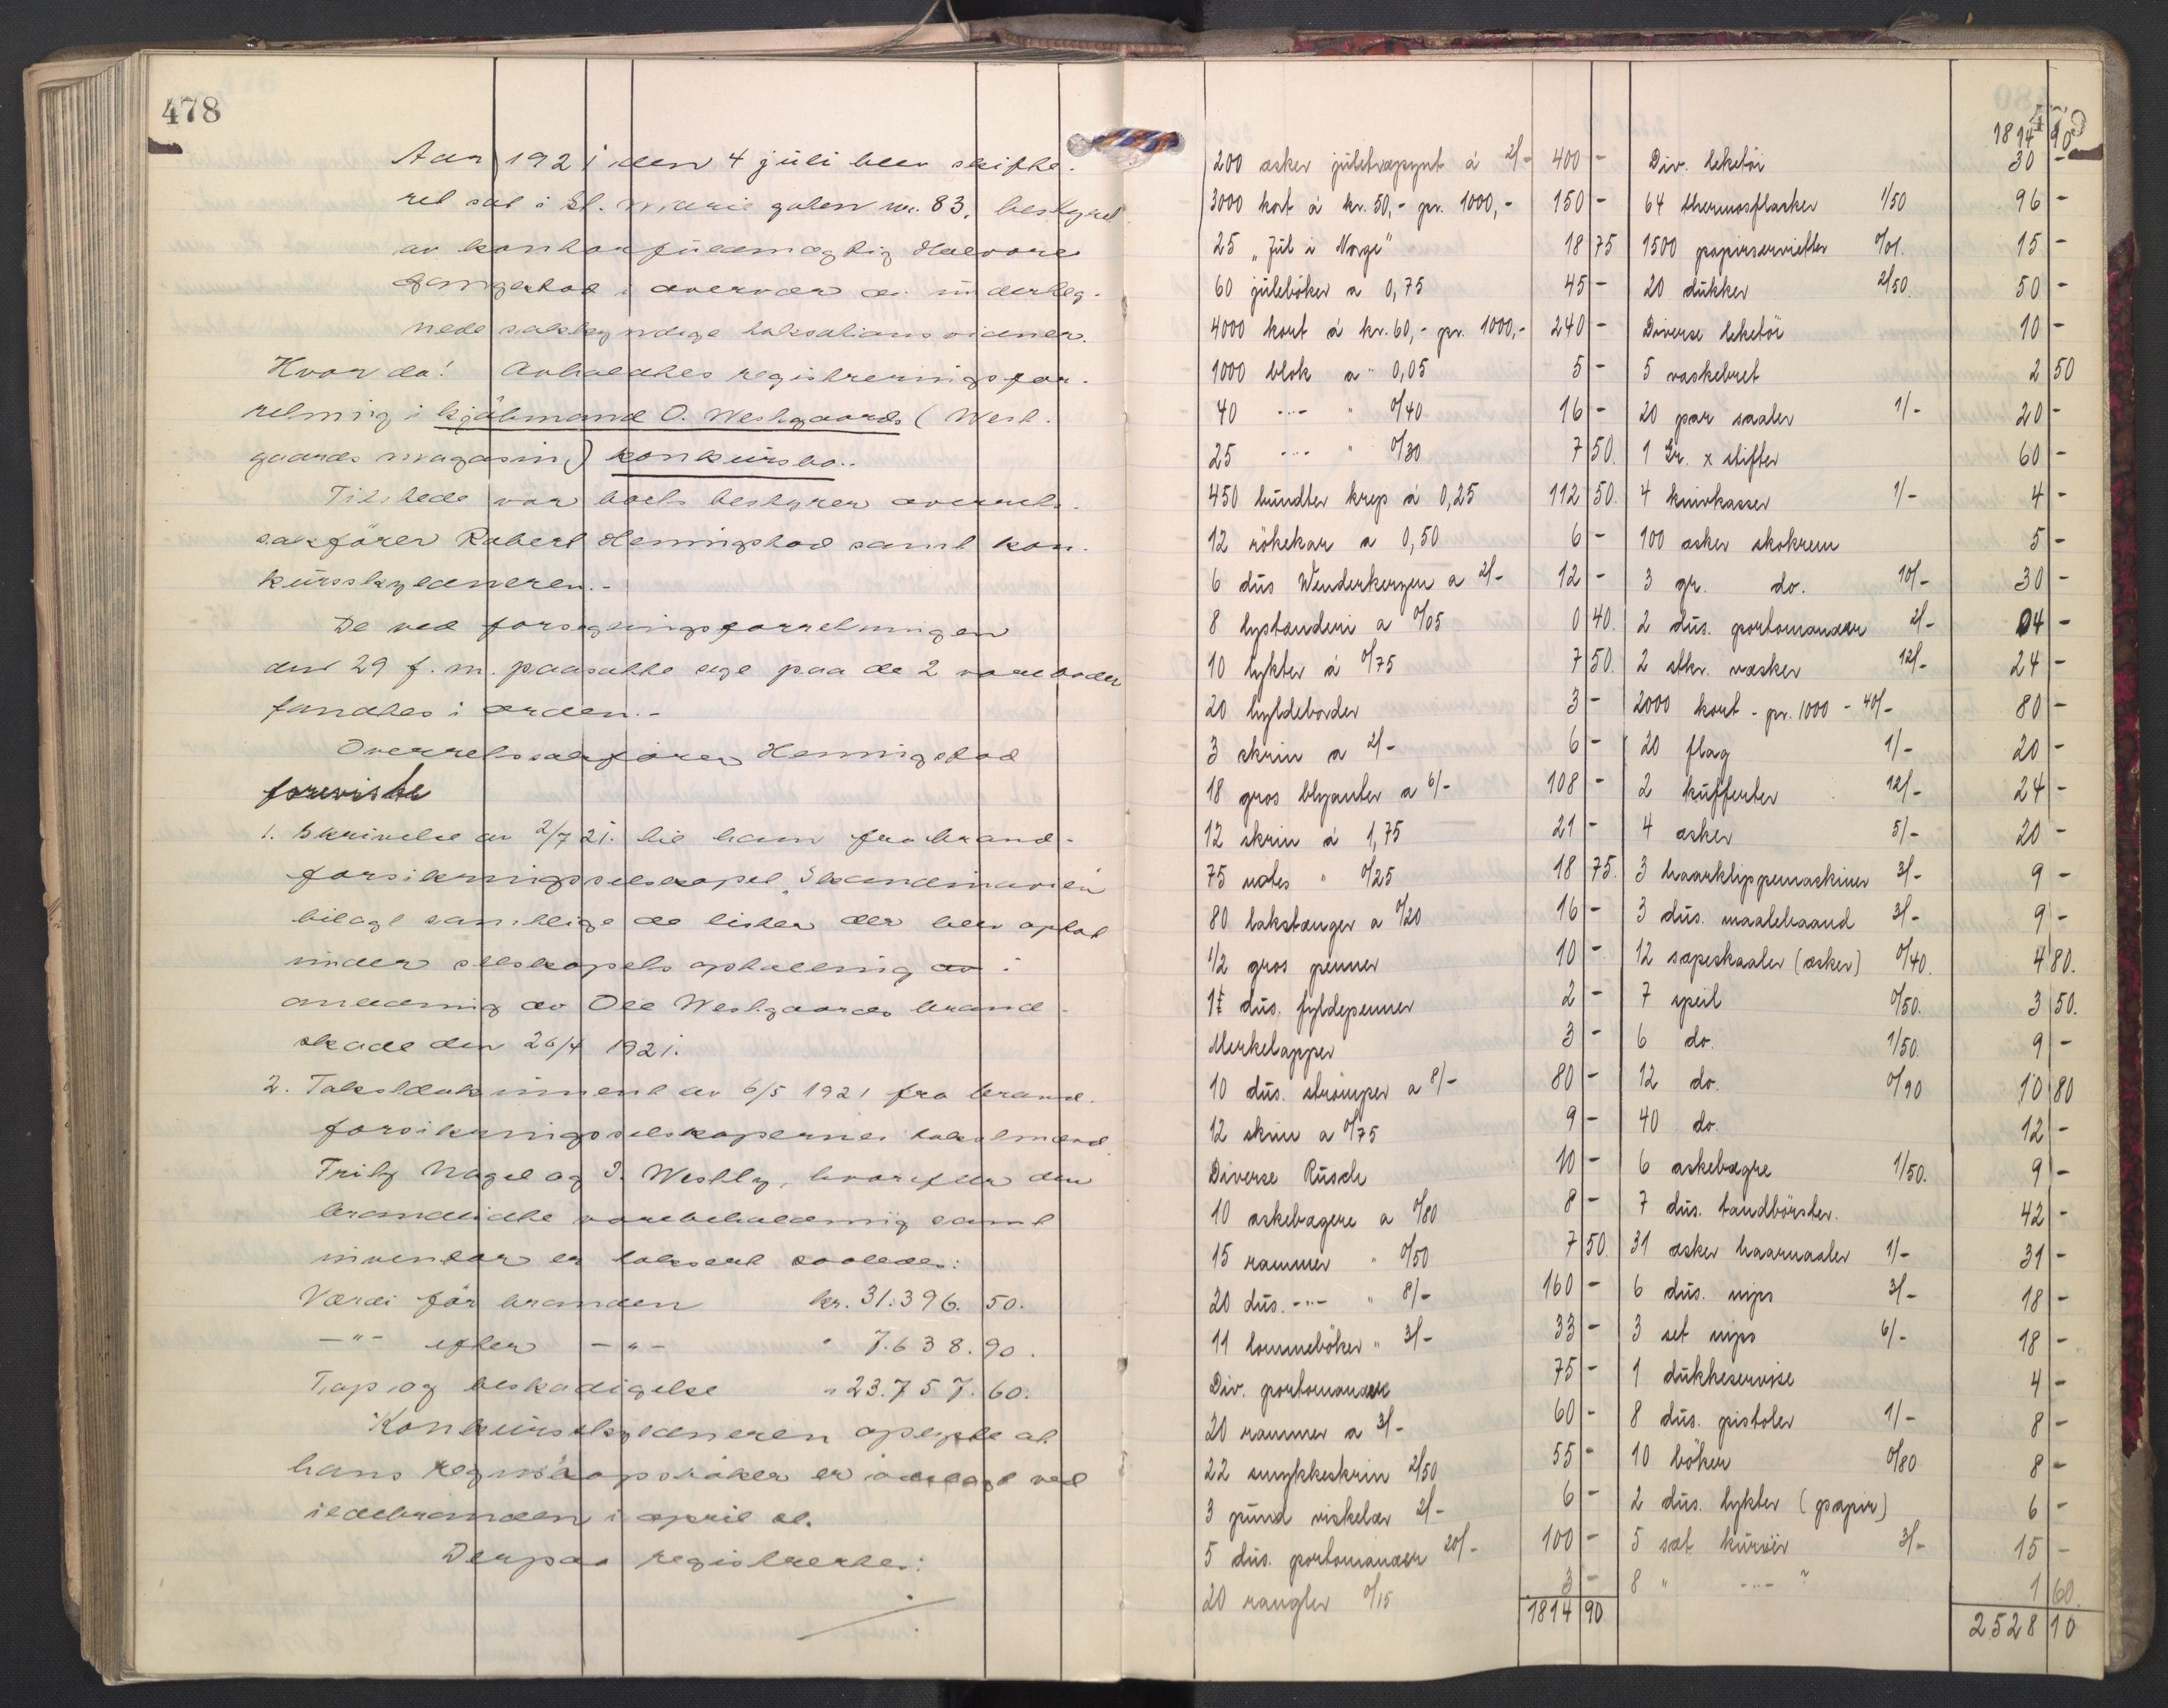 478
Aar 1921 den 4 juli blev skifte-
ret sat i St. Marie gaten nr. 83, bestyret
av kontorfuldmægtig Halvore
i overvær av underteg-
nede sakkyndige taksationsvidner.
Hvorda! Avholdtes registreringsfor-
retning i kjøbmand O. Westgaards (West-
gaards magasin) konkursbo..
Tilstede var boets bestyrer overrets-
sakfører Robert Henningstad samt kon-
kursskyldneren.-
De ved forseglingsforretningen
den 29 f. m. paasatte segl paa de 2 vareboder
fandtes i orden.-
Overretssakfører Henningstad
foreviste
1. Skrivelse av 2/7 21. til ham fra brand-
forsikringsselskapet "Skandinavien"
bilagt samtlige de lister der blev optat
under selskapets optælling i
anledning av Ole Westgaards brand-
skade den 26/4 1921.
2. Takstdokument av 6/5 1921 fra brand-
forsikringsselskapernes takstmænd
Fritz Nagel og I. Westly, hvorefter den
brandlidte varebeholdning samt
inventar er taksert saaledes:
Værdi før branden kr. 31.396. 50.
-"- efter -"- " 7.638. 90.
Tap og beskadigelse " 23.757. 60.
Konkursskyldneren oplyste at
hans regnskapsbøker er ødelagt ved
ildebranden i april d.
Derpaa registrertes:
479
200 æsker juletræpynt á 2/- 400 -
3000 kort á kr. 50,- pr. 1000,- 150 -
25 "Jul i Norge" 18 75
60 julebøker a 0,75 45 -
4000 kort á kr. 60,- pr. 1000,- 240 -
1000 blok a " 0,05 5 -
40 -"- " 0/40 16 -
25 -"- " 0/30 7 50.
450 bundter krep á 0,25 112 50.
12 rökekar a 0,50 6 -
6 dus Wunderkerzen a 2/- 12 -
8 lystænderi a 0/05 0 40.
10 lykter á 0/75 7 50.
20 hyldeborder 3 -
3 skrin a 2/- 6 -
18 gros blyanter a 6/- 108 -
12 skrin á 1,75 21 -
75 notes " 0/25 18 75.
80 lakstænger a 0/20 16 -
1/2 gros penner 10 -
dus. fyldepenner 2 -
Merkelapper 3 -
10 dus. strömper a 8/- 80 -
12 skrin a 0/75 9 -
Diverse Rusch 10 -
10 askebægere a 0/80 8 -
15 rammer " 0/50 7 50.
20 dus. -"- " 8/- 160 -
11 lommeböker " 3/- 33 -
Div. portomonæer 75 -
20 rammer a 3/- 60 -
22 smykkeskrin 2/50 55 -
3 pund viskelær 2/- 6 -
5 dus. portomonæer 20/- 100 -
20 rangler 0/15 3 -
1814 90
1814 90
Div. leketöi 30 -
64 thermosflasker 1/50 96 -
1500 papirservietter 0/01. 15 -
20 dukker 2/50. 50 -
Diverse leketöi 10 -
5 vaskebret 2 50
20 par saaler 1/- 20 -
1 Gr. x stifter 60 -
4 knivkasser 1/- 4 -
100 æsker skokrem 5 -
3 gr. do. 10/- 30 -
2 dus. portomonæer 2/- 4 -
2 stkr. væsker 12/- 24 -
2000 kort - pr. 1000 - 40/- 80 -
20 flag 1/- 20 -
2 kufferter 12/- 24 -
4 æsker 5/- 20 -
3 haarklippemaskiner 3/- 9 -
3 dus. maalebaand 3/- 9 -
12 sæpeskaaler (æsker) 0/40. 4 80.
7 speil 0/50. 3 50.
6 do. 1/50. 9 -
12 do. 0/90 10 80
40 do. 12 -
6 askebægre 1/50. 9 -
7 dus. tandbörster. 42 -
31 æsker haarnaaler 1/- 31 -
6 dus. nips 3/- 18 -
3 set nips 6/- 18 -
1 dukkeservise 4 -
8 dus. pistoler 1/- 8 -
10 böker 0/80 8 -
2 dus. lykter (papir) 6 -
5 sæt kurver 3/- 15 -
8 " -"- 1 60.
2528 10